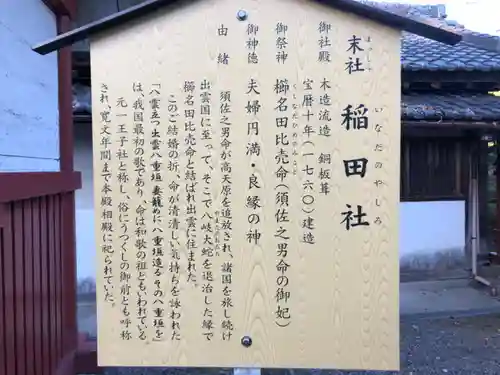 末社 稲田社
はし いなだのやしろ
御社殿 木造流造 銅板葺
宝暦十年(一七六〇)建造
御祭神 櫛名田比売命(須佐之男命の御妃)
くしなだひめのみこと
御神徳 夫婦円満・良縁の神
由緒 須佐之男命が高天原を追放され、諸国を旅し続け
出雲国に至って、そこで八岐大蛇を退治した縁で
やまたのおろち
櫛名田比売命と結ばれ出雲に住まれた。
このご結婚の折、命が清清しい気持ちを詠われた
「八雲立つ出雲八重垣妻籠めに八重垣造るその八重垣を」
は、我国最初の歌であり、命は和歌の祖ともいわれている。
元一王子社と称し、俗にうつくしの御前とも呼称
され、寛文年間まで本殿相殿に祀られていた。